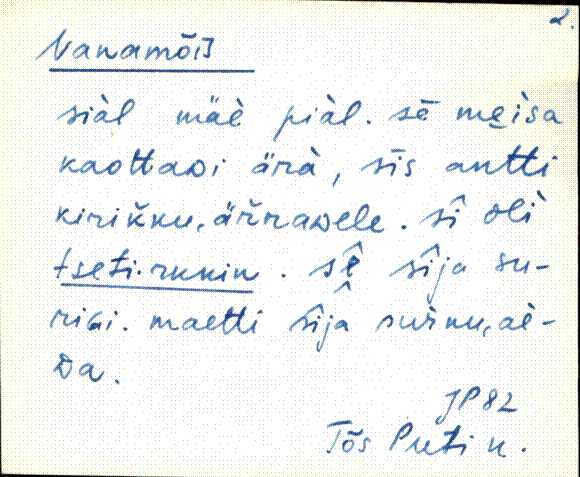 2.
Vanamõiз
siàl mäè piàl. sē mẹìsa
kaottaᴅi ärà, sīs antti
kirikku, är̆raᴅele. sî̬ olì
tseti.runin. sê̬ sîja su-
riɢi. maetti sîjâ surnu, aè-
ᴅa.
JP 82
Tõs Puti n.